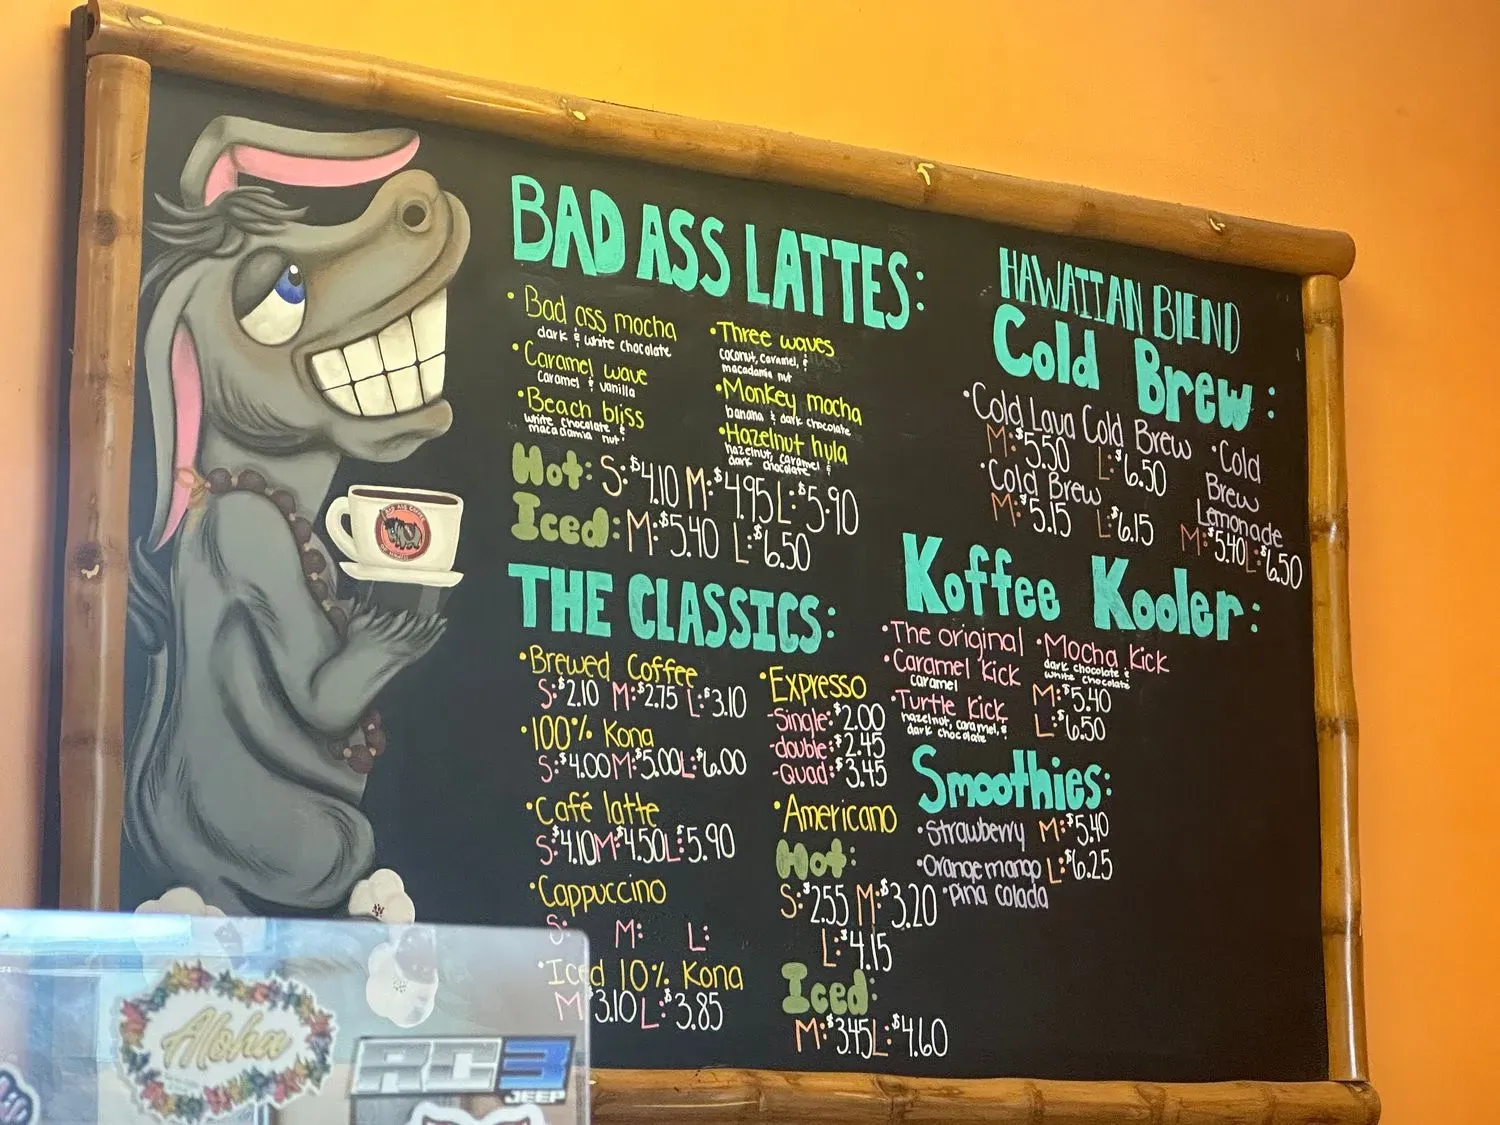 BAD ASS LATTES:
• Bad ass mocha
dark & white chocolate
• Caramel wave
Caramel & vanilla
• Beach bliss
white chocolate &
macadamia nut
• Three waves
coconut, caramel, &
macadamia nut
• Monkey mocha
banana & dark chocolate
• Hazelnut hula
hazelnut, caramel &
dark chocolate
Hot: S: $4.10 M: $4.95 L: $5.90
Iced: M: $5.40 L: $6.50
THE CLASSICS:
• Brewed Coffee
S: $2.10 M: $2.75 L: $3.10
• 100% Kona
S: $4.00 M: $5.00 L: $6.00
• Café latte
S: $4.10 M: $4.50 L: $5.90
• Cappuccino
S: M: L:
• Iced 10% Kona
M $3.10 L: $3.85
• Expresso
-Single: $2.00
-double: $2.45
-Quad: $3.45
• Americano
Hot:
S: $2.55 M: $3.20
L: $4.15
Iced:
M: $3.45 L: $4.60
HAWAIIAN BLEND
Cold Brew:
• Cold Lava Cold Brew
M: $5.50 L: $6.50
• Cold Brew
M: $5.15 L: $6.15
• Cold
Brew
Lemonade
M: $5.40 L: $6.50
Koffee Kooler:
• The original
• Caramel kick
caramel
• Turtle kick
hazelnut, caramel, &
dark chocolate
• Mocha kick
dark chocolate &
white chocolate
M: $5.40
L: $6.50
Smoothies:
• Strawberry M: $5.40
• Orange mango L: $6.25
• Pina colada
Aloha
RC3
JEEP